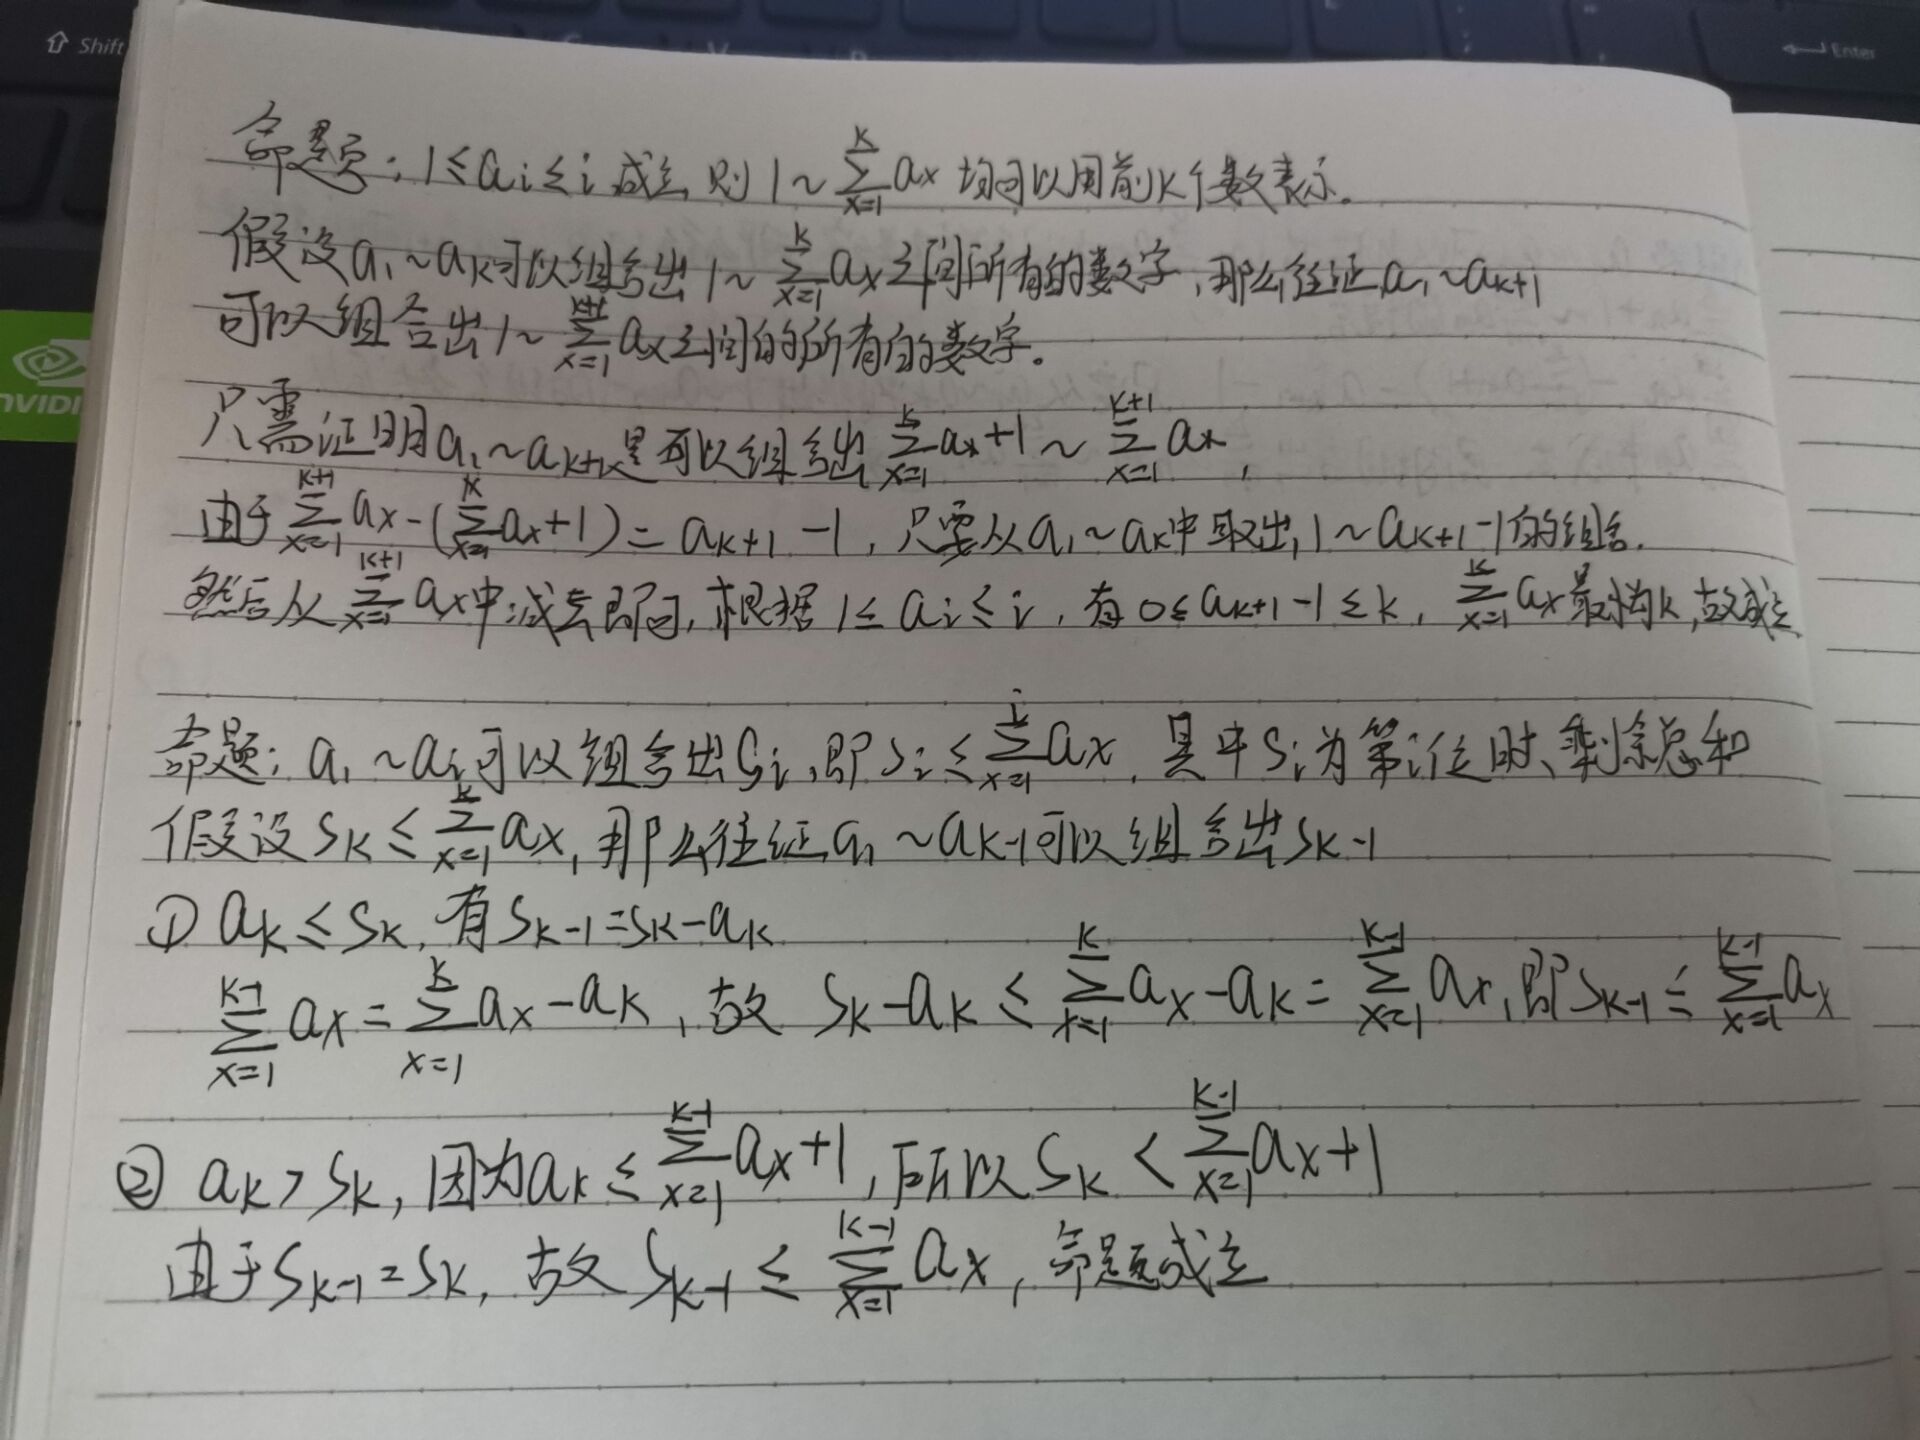 Shift
Enter
NVIDI
命题：1≤ai≤i成立,则1~∑(x=1→k)ax 均可以用前k个数表示。
假设a1~ak可以组合出1~∑(x=1→k)ax之间所有的数字,那么往证a1~ak+1
可以组合出1~∑(x=1→k+1)ax之间的所有的数字。
只需证明a1~ak+1是可以组合出∑(x=1→k)ax+1~∑(x=1→k+1)ax,
由于∑(x=1→k+1)ax-(∑(x=1→k)ax+1)=ak+1 -1,只要从a1~ak中取出1~ak+1-1的组合.
然后从∑(x=1→k+1)ax中减去即可,根据1≤ai≤i,有0≤ak+1-1≤k,∑(x=1→k)ax最小为k,故成立
命题：a1~ai可以组合出Si,即Si≤∑(x=1→i)ax,其中Si为第i位时、剩余总和
假设Sk≤∑(x=1→k)ax,那么往证a1~ak-1可以组合出Sk-1
① ak≤Sk,有Sk-1=Sk-ak
∑(x=1→k-1)ax=∑(x=1→k)ax-ak,故 Sk-ak≤∑(x=1→k)ax-ak=∑(x=1→k-1)ax,即Sk-1≤∑(x=1→k-1)ax
② ak>Sk,因为ak≤∑(x=1→k-1)ax+1,所以Sk<∑(x=1→k-1)ax+1
由于Sk-1=Sk,故Sk-1≤∑(x=1→k-1)ax,命题成立